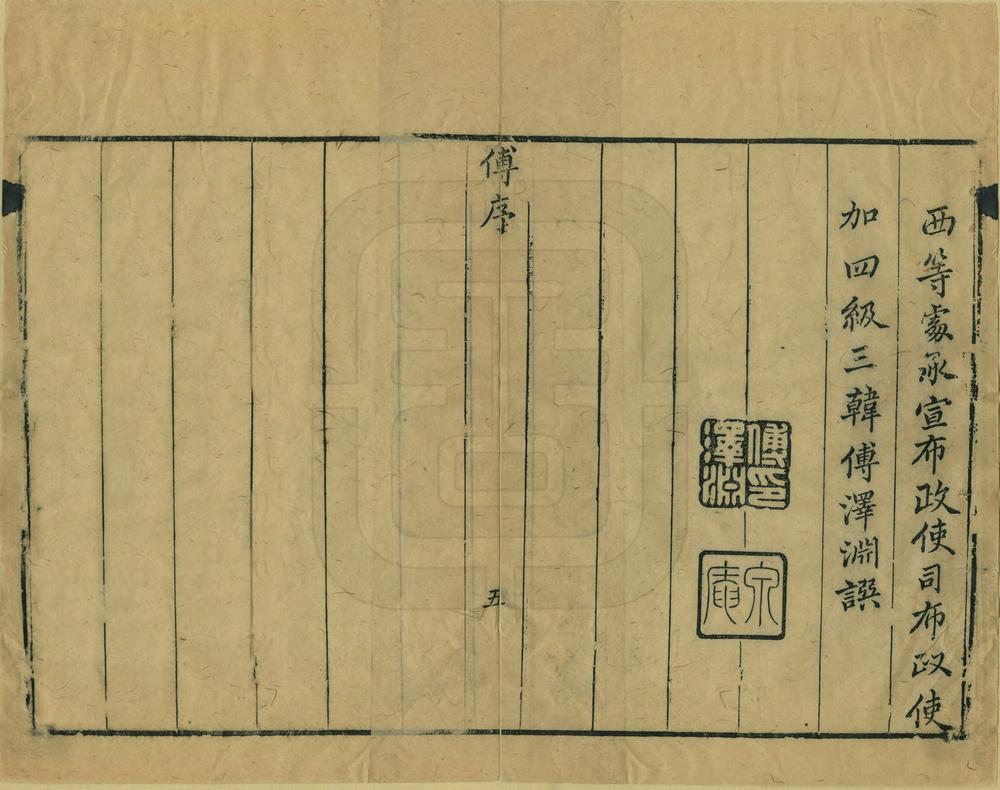 西等處承宣布政使司布政使
加四級三韓傅澤淵譔
傅印
澤淵
傅序
五